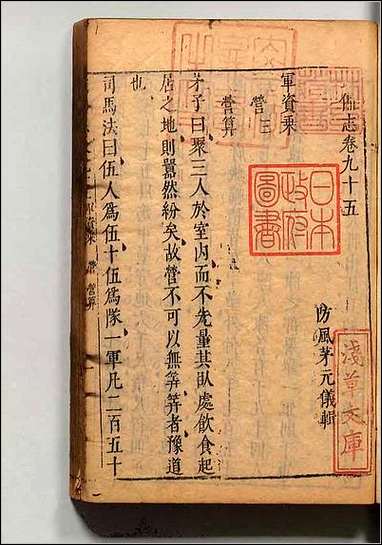 武備志卷九十五
防風茅元儀輯
軍資乘
營三
營算
茅子曰聚三人於室內而不先量其臥處飲食起
居之地則囂然紛矣故營不可以無筭筭者豫道
也
司馬法曰伍人爲伍十伍爲隊一軍凡二百五十
日本
政府
圖書
淺草文庫